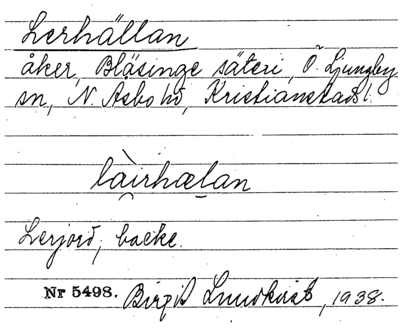 Lerhällan
åker, Bläsinge säteri, Ö. Ljungby
sn, N. Åsbo hd, Kristianstads l.
làirhælan
Lerjord, backe.
Nr 5498. Birgit Lundkvist, 1938.